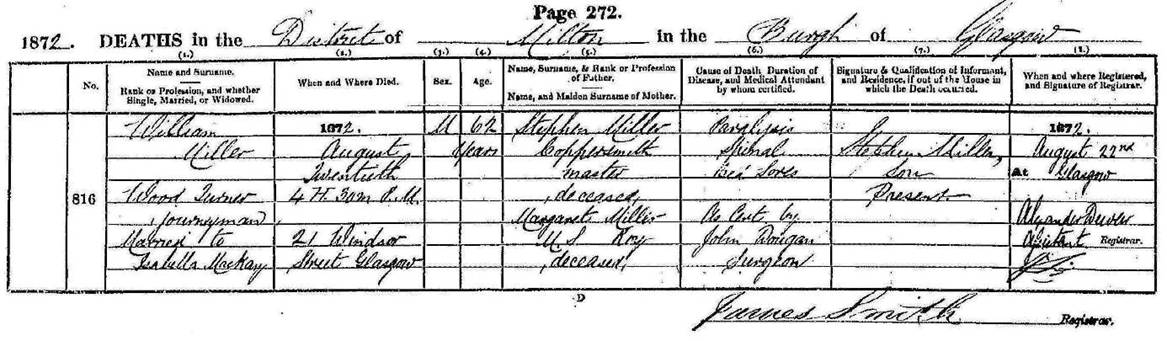 Page 272.
1872. DEATHS in the District of Milton in the Burgh of Glasgow
(1.) (2.) (3.) (4.) (5.) (6.) (7.) (8.)
No.
Name and Surname.
Rank or Profession, and whether
Single, Married, or Widowed.
When and Where Died.
Sex.
Age.
Name, Surname, & Rank or Profession
of Father.
Name, and Maiden Surname of Mother.
Cause of Death, Duration of
Disease, and Medical Attendant
by whom certified.
Signature & Qualification of Informant,
and Residence, if out of the House in
which the Death occurred.
When and where Registered,
and Signature of Registrar.
816
William
Miller
Wood Turner
(journeyman)
Married to
Isabella MacKay
1872.
August
Twentieth
4 H. 30m P.M.
21 Windsor
Street Glasgow
M
62
Years
Stephen Miller
Coppersmith
master
(deceased)
Margaret Miller
M.S Roy
(deceased)
Paralysis
Spinal
Bed Sores
As Cert by
John Dougan
Surgeon
Stephen Miller,
Son
Present
1872.
August 22nd
At Glasgow
Alexander
Assistant Registrar.
D
James Smith Registrar.